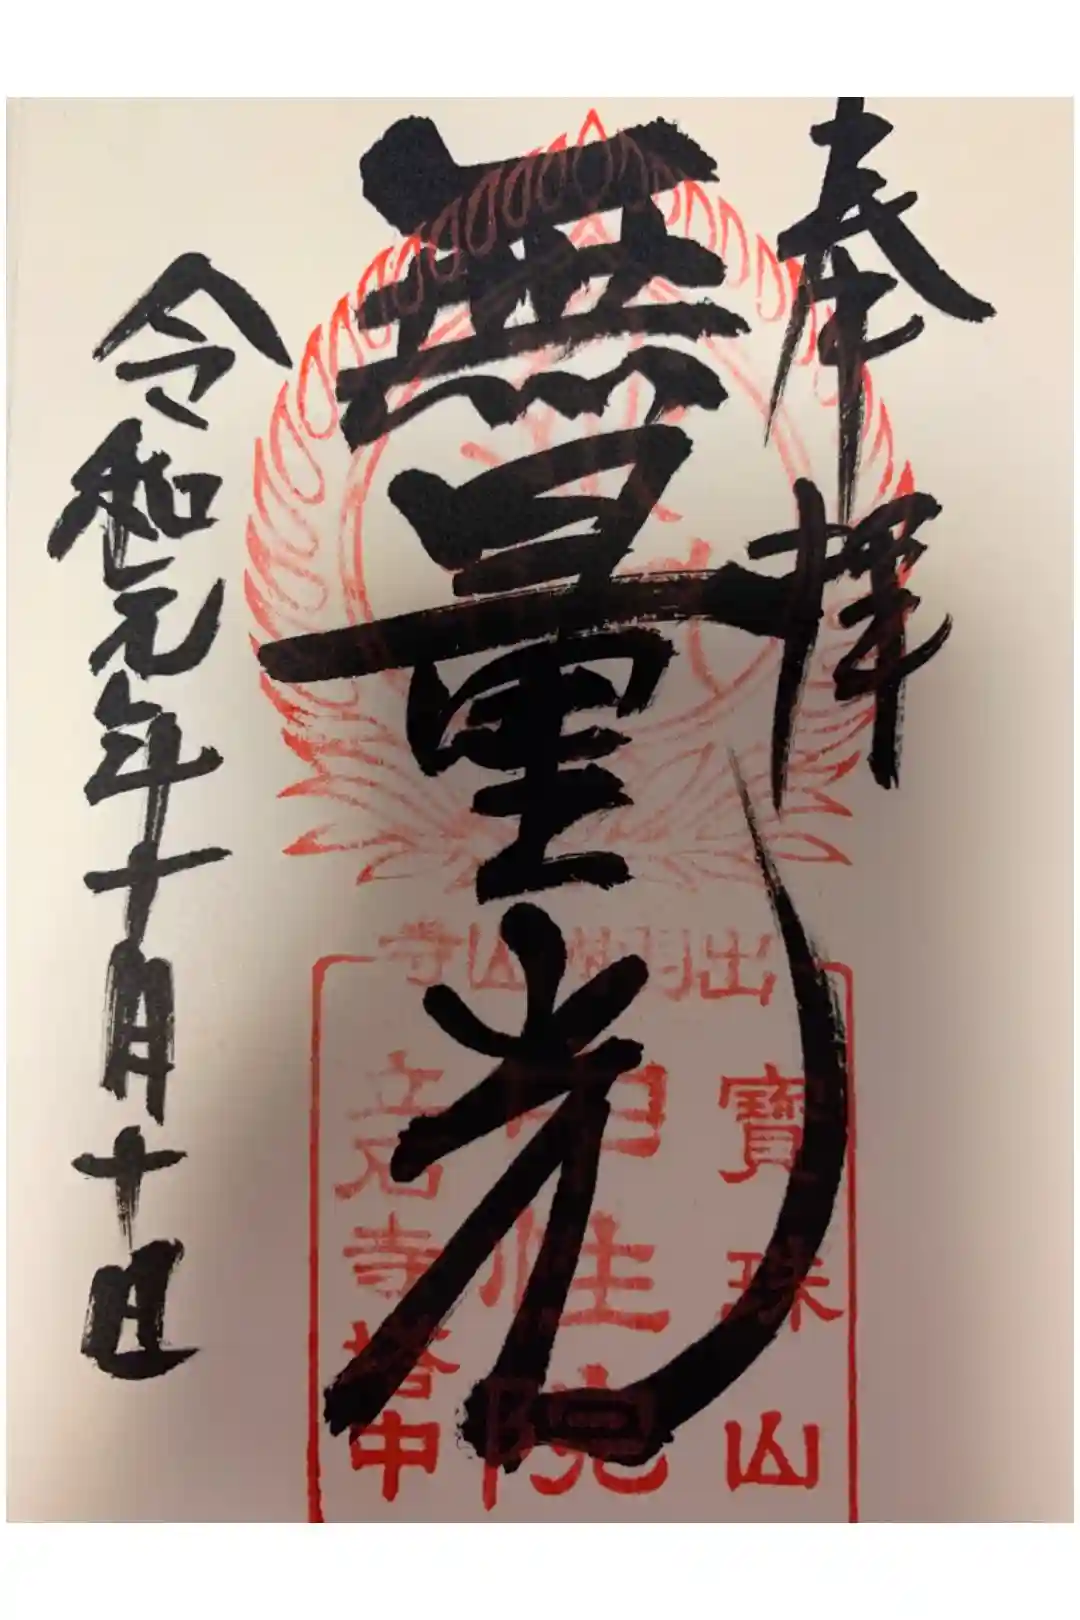 奉拝
無量光
令和元年十月十日
出羽州山寺
寶珠山
中性院
立石寺塔中